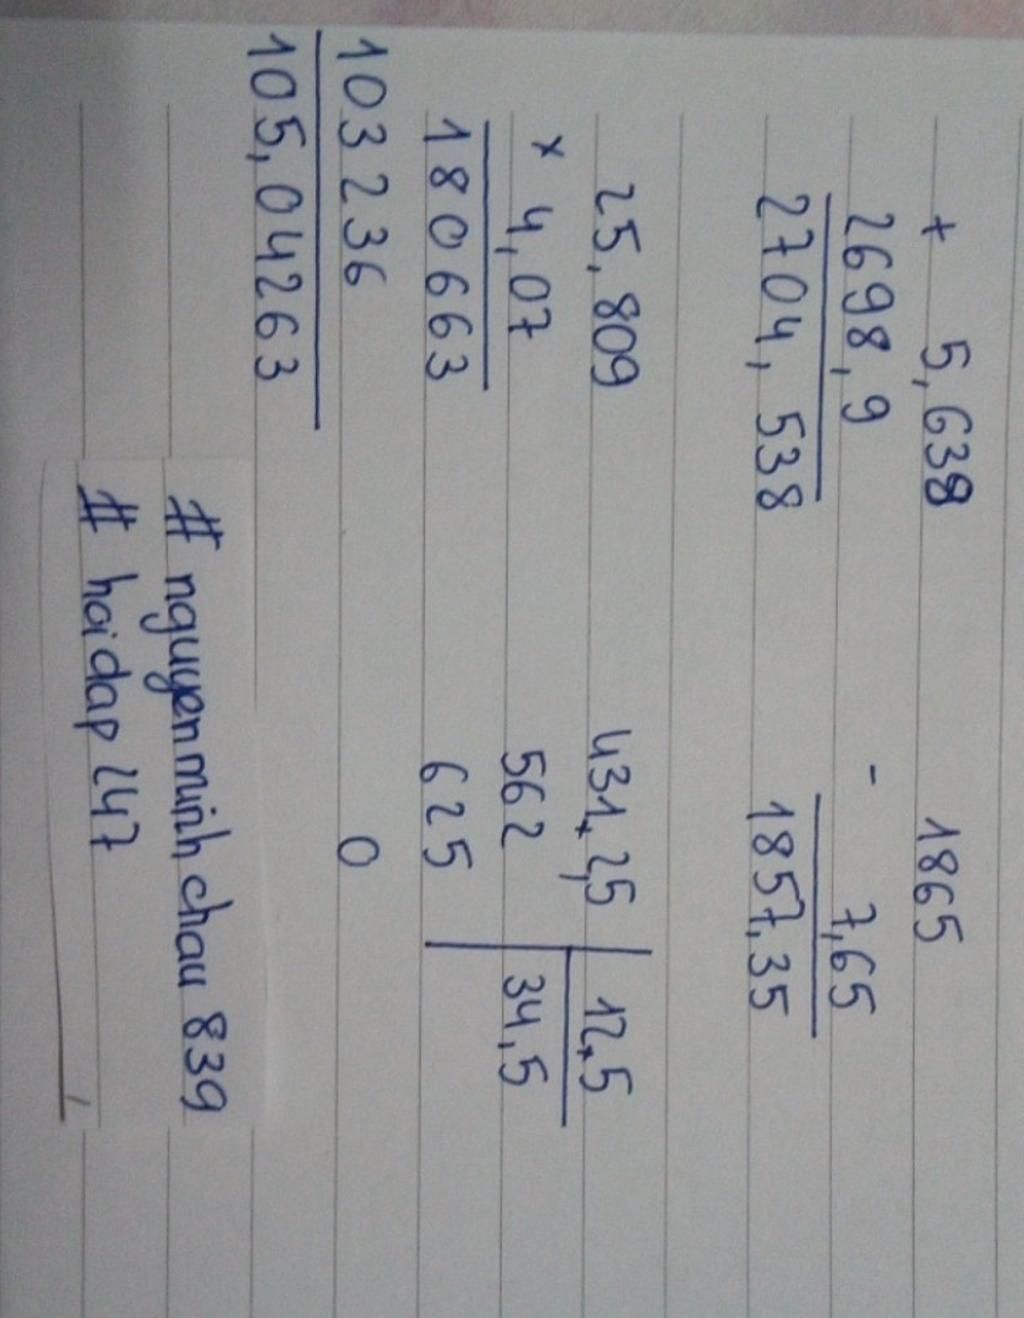 + 5,638
2698,9
2704,538
1865
- 7,65
1857,35
25,809
x 4,07
180663
103236
105,04263
431,2,5 12,5
562 34,5
625
0
# nguyenminhchau839
# hoidap247